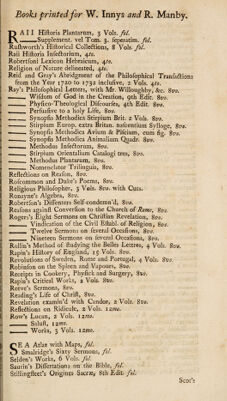 Books printed for W. Innys and R. Manby.
RAII Historia Plantarum, 3 Vols. fol.
—— Supplement. vel Tom. 3. seperatim. fol.
Rushworth's Historical Collections, 8 Vols. fol.
Raii Historia Insectorum, 4to.
Robertsoni Lexicon Hebraicum, 4to.
Religion of Nature delineated, 4to.
Reid and Gray's Abridgment of the Philosophical Transactions
from the Year 1720 to 1732 inclusive, 2 Vols. 4to.
Ray's Philosophical Letters, with Mr. Willoughby, &c. 8vo.
—— Wisdom of God in the Creation, 9th Edit. 8vo.
—— Physico-Theological Discourses, 4th Edit. 8vo.
—— Persuasive to a holy Life, 8vo.
—— Synopsis Methodica Stirpium Brit. 2 Vols. 8vo.
—— Stirpium Europ. extra Britan. nascentium Sylloge, 8vo.
—— Synopsis Methodica Avium & Piscium, cum fig. 8vo.
—— Synopsis Methodica Animalium Quadr. 8vo.
—— Methodus Insectorum, 8vo.
—— Stirpium Orientalium Catalogi tres, 8vo.
—— Methodus Plantarum, 8vo.
—— Nomenclator Trilinguis, 8vo.
Reflections on Reason, 8vo.
Roscommon and Duke's Poems, 8vo.
Religious Philosopher, 3 Vols. 8vo. with Cuts.
Ronayne's Algebra, 8vo.
Robertson's Dissenters Self-condemn'd, 8vo.
Reasons against Conversion to the Church of Rome, 8vo.
Rogers's Eight Sermons on Christian Revelation, 8vo.
—— Vindication of the Civil Establ. of Religion, 8vo.
—— Twelve Sermons on several Occasions, 8vo.
—— Nineteen Sermons on several Occasions, 8vo.
Rollin's Method of studying the Belles Lettres, 4 Vols. 8vo.
Rapin's History of England, 15 Vols. 8vo.
Revolutions of Sweden, Rome and Portugal, 4 Vols. 8vo.
Robinson on the Spleen and Vapours, 8vo.
Receipts in Cookery, Physick and Surgery, 8vo.
Rapin's Critical Works, 2 Vols. 8vo.
Reeve's Sermons, 8vo.
Reading's Life of Christ, 8vo.
Revelation examin'd with Candor, 2 Vols. 8vo.
Reflections on Ridicule, 2 Vols. 12mo.
Row's Lucan, 2 Vols. 12mo.
—— Salust, 12mo.
—— Works, 3 Vols. 12mo.
SEA Atlas with Maps, fol.
Smalridge's Sixty Sermons, fol.
Selden's Works, 6 Vols. fol.
Saurin's Dissertations on the Bible, fol.
Stillingfleet's Origines Sacræ, 8th Edit. fol.
Scot's